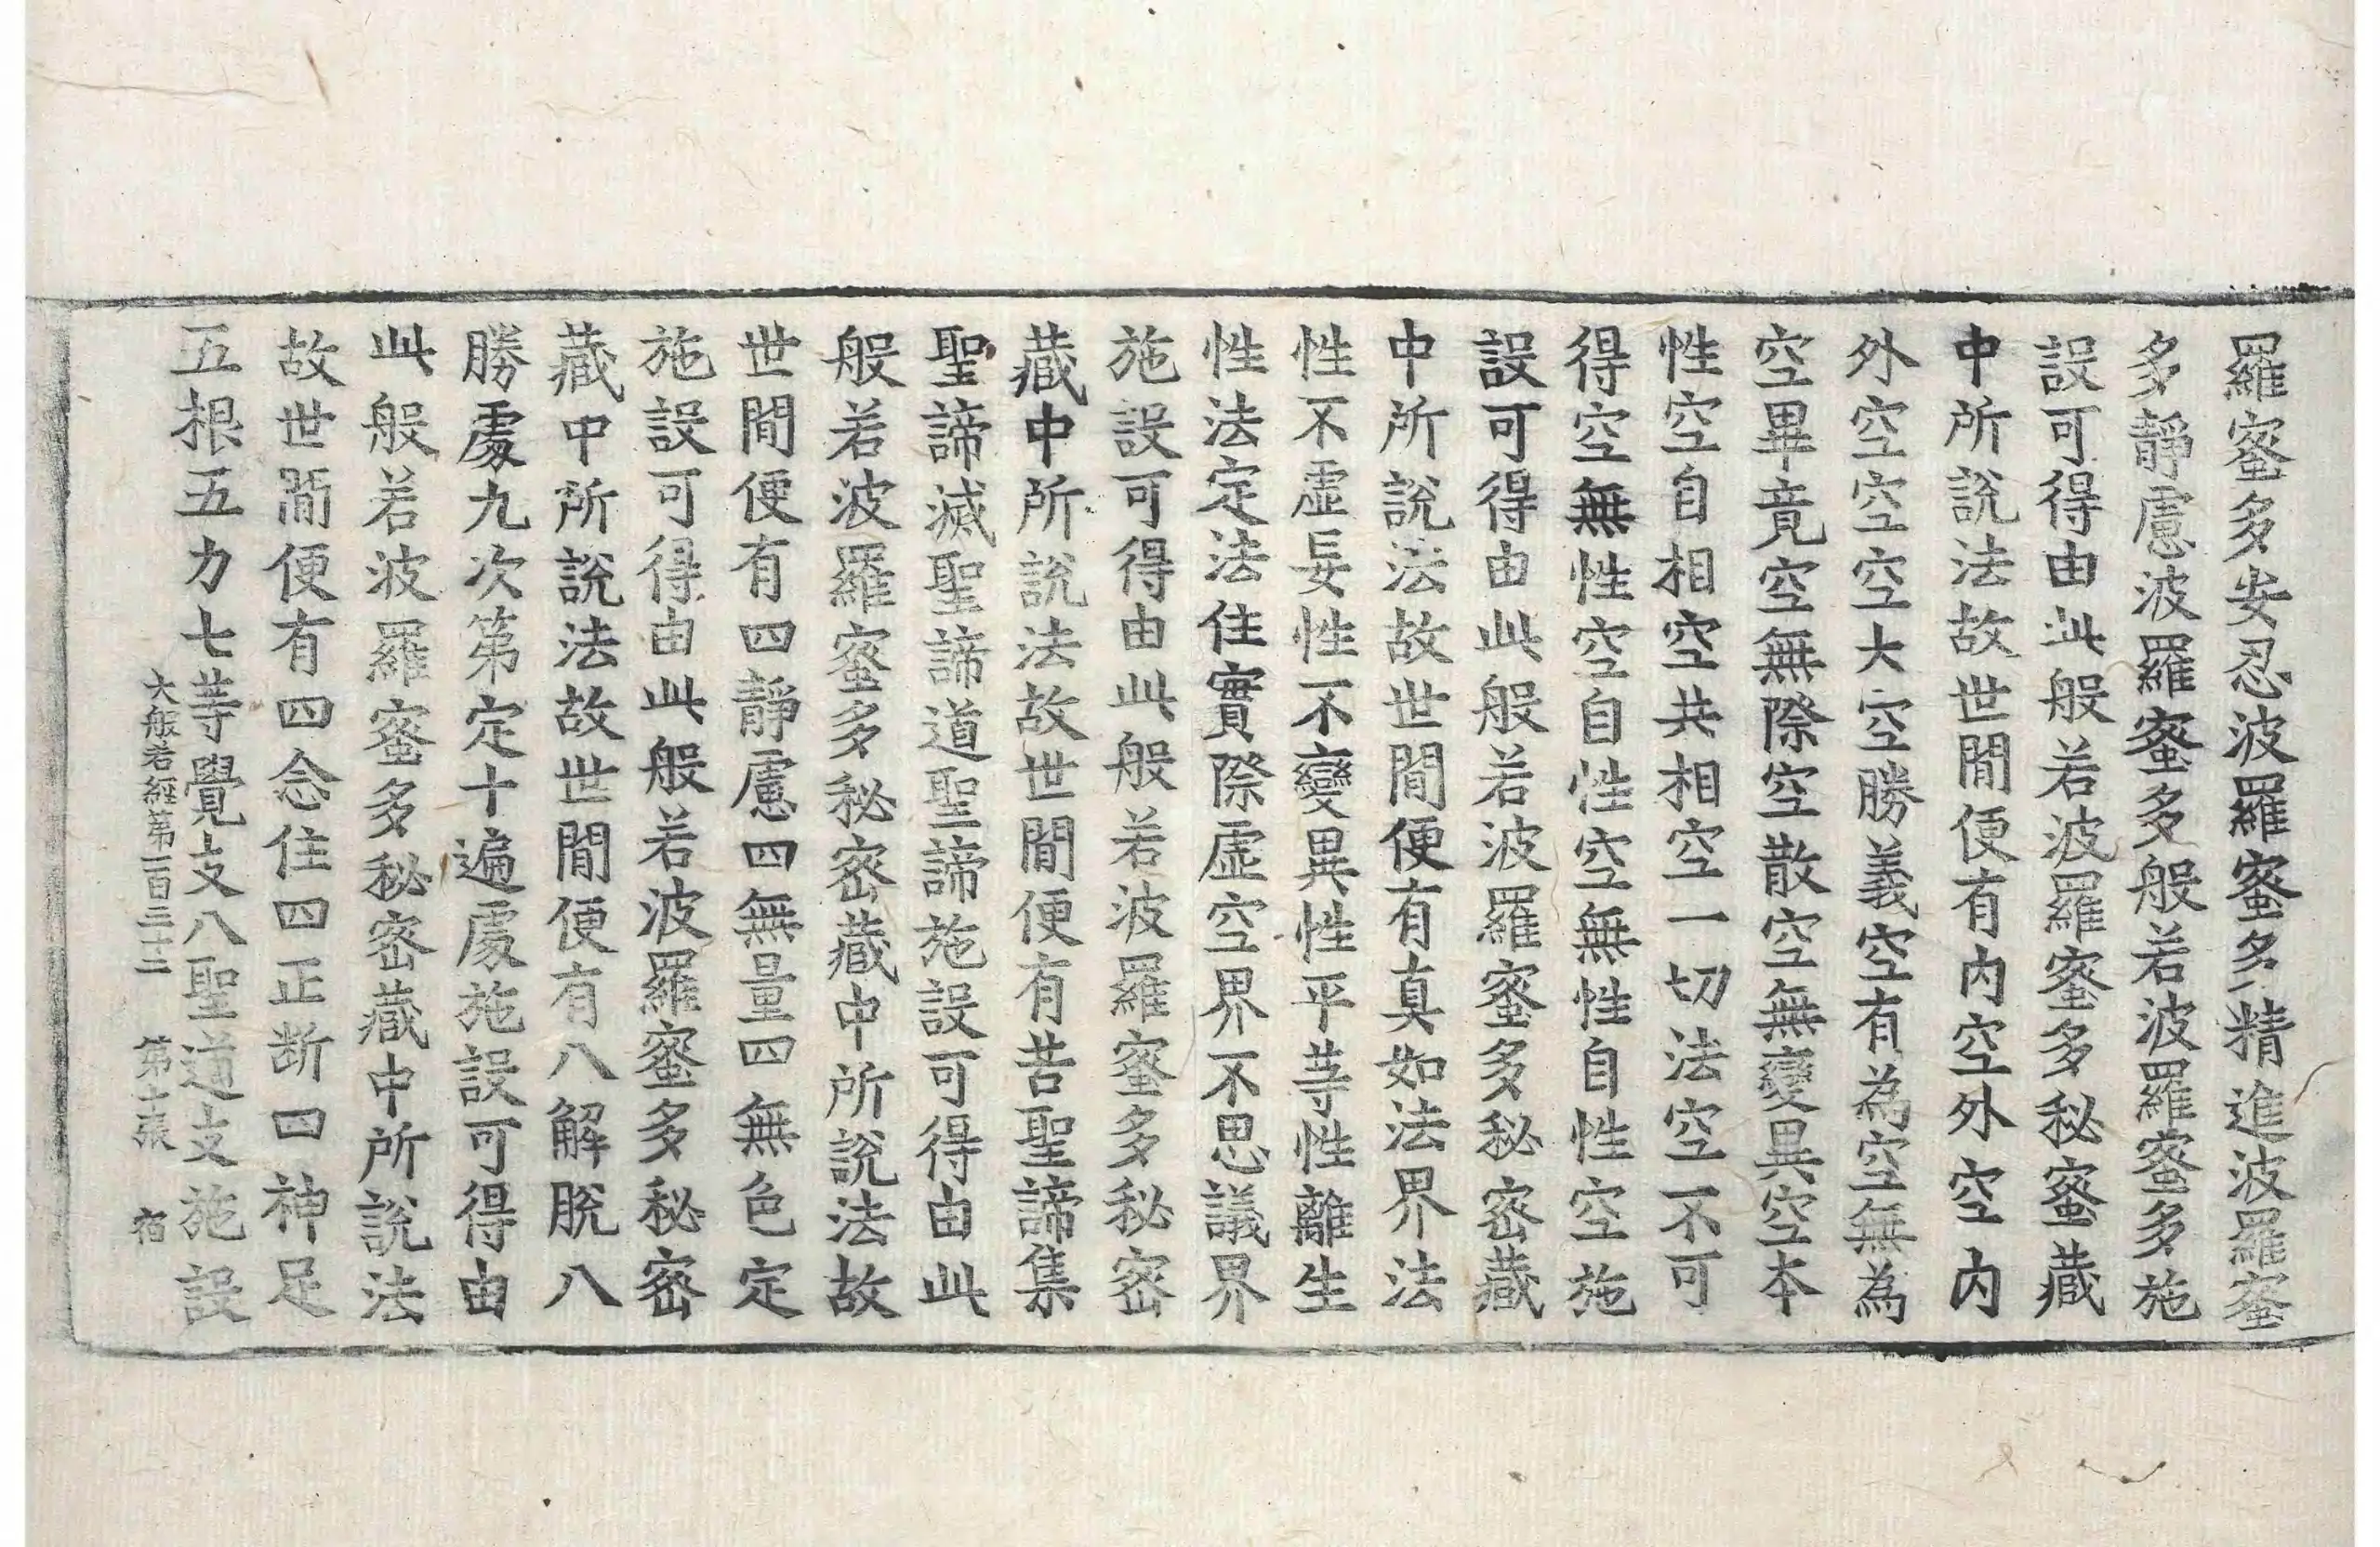 羅蜜多安忍波羅蜜多精進波羅蜜
多靜慮波羅蜜多般若波羅蜜多施
設可得由此般若波羅蜜多秘蜜藏
中所說法故世間便有內空外空內
外空空空大空勝義空有為空無為
空畢竟空無際空散空無變異空本
性空自相空共相空一切法空不可
得空無性空自性空無性自性空施
設可得由此般若波羅蜜多秘密藏
中所說法故世間便有真如法界法
性不虛妄性不變異性平等性離生
性法定法住實際虛空界不思議界
施設可得由此般若波羅蜜多秘密
藏中所說法故世間便有苦聖諦集
聖諦滅聖諦道聖諦施設可得由此
般若波羅蜜多秘密藏中所說法故
世間便有四靜慮四無量四無色定
施設可得由此般若波羅蜜多秘密
藏中所說法故世間便有八解脫八
勝處九次第定十遍處施設可得由
此般若波羅蜜多秘密藏中所說法
故世間便有四念住四正断四神足
五根五力七等覺支八聖道支施設
大般若經第一百二十二 第十張 宿